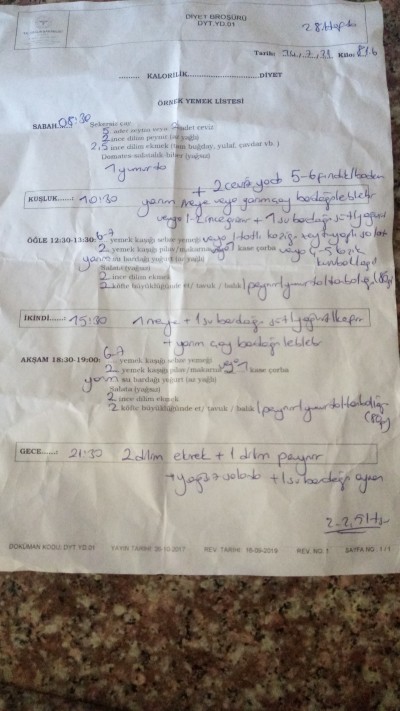 DİYET BROŞÜRÜ
DYT.YD.01
28.Hafta
Tarih: 14.7.21 Kilo: 81.6
........ KALORİLİK........................DİYET
ÖRNEK YEMEK LİSTESİ
SABAH: 08:30 Şekersiz çay
5 adet zeytin veya 2 adet ceviz
2 ince dilim peynir (az yağlı)
2,5 ince dilim ekmek (tam buğday, yulaf, çavdar vb. )
Domates-salatalık-biber (yağsız)
1 yumurta
+ 2 ceviz yada 5-6 fındık/badem
KUŞLUK......: 10:30 yarım meyve veya yarım çay bardağı leblebi
veya 1-2 + 1 su bardağı süt/yoğurt
ÖĞLE 12:30-13:30: 6-7 yemek kaşığı sebze yemeği veya 1 tatlı kaşığı zeytinyağlı salata
2 yemek kaşığı pilav/makarna veya 1 kase çorba veya
yarım su bardağı yoğurt (az yağlı)
Salata (yağsız)
2 ince dilim ekmek
2 köfte büyüklüğünde et/ tavuk / balık / peynir/yumurta/tonbalığı
İKİNDİ......: 15:30 1 meyve + 1 su bardağı süt/yoğurt/kefir
+ yarım çay bardağı leblebi
AKŞAM 18:30-19:00: 6-7 yemek kaşığı sebze yemeği
2 yemek kaşığı pilav/makarna veya 1 kase çorba
yarım su bardağı yoğurt (az yağlı)
Salata (yağsız)
2 ince dilim ekmek
2 köfte büyüklüğünde et/ tavuk / balık / peynir/yumurta/tonbalığı
GECE......: 21:30 2 dilim ekmek + 1 dilim peynir
+ yağsız salata + 1 su bardağı ayran
2-2,5 lt su
DOKÜMAN KODU: DYT.YD.01 YAYIN TARİHİ: 30-10-2017 REV. TARİHİ: 16-09-2019 REV. NO: 1 SAYFA NO : 1 / 1